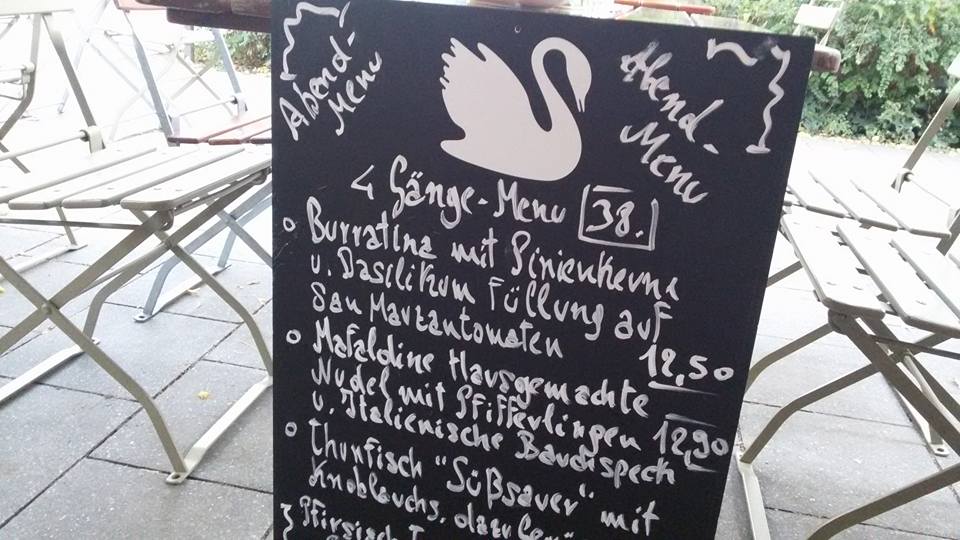 Abend-
Menu
Abend-
Menu
4 Gänge-Menu 38.
Burratina mit Pinienkerne
u. Basilikum Füllung auf
San Marzantomaten 12,50
Mafaldine Hausgemachte
Nudel mit Pfifferlingen 12,90
u. Italienische Bauchspeck
Thunfisch "Süßsauer" mit
Knoblauchs.
Pfirsisch